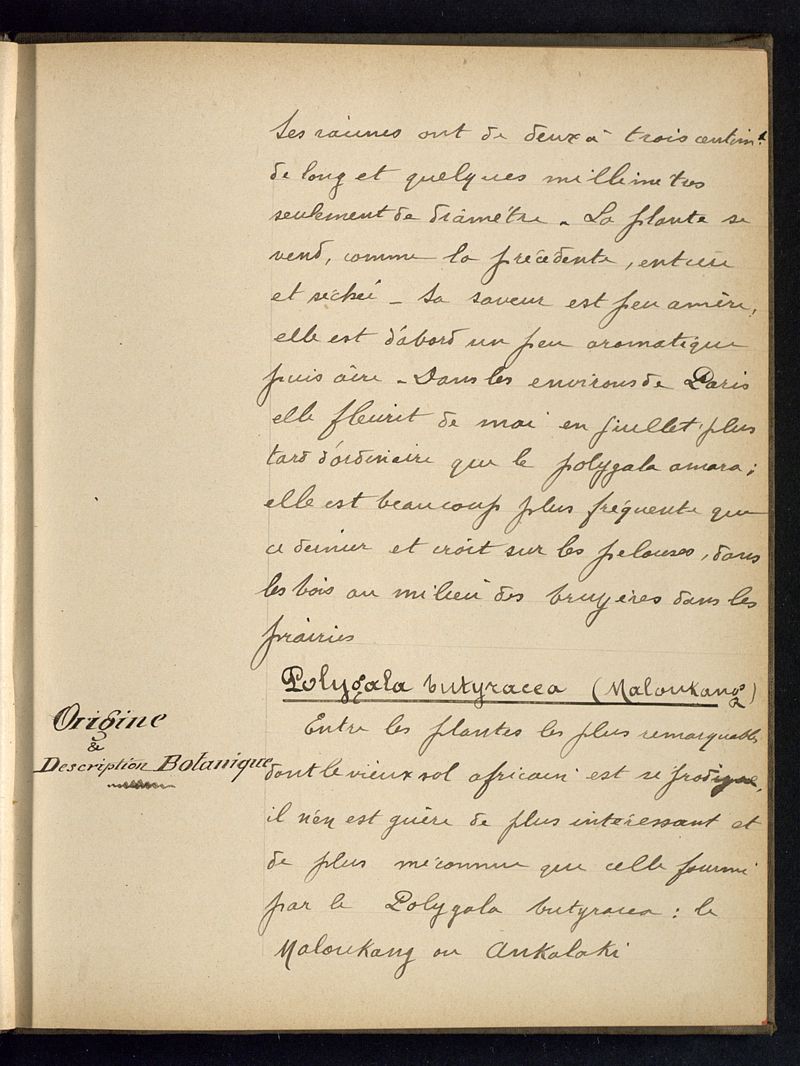 Ses racines ont de deux à trois centim.
de long et quelques millimètres
seulement de diamètre. La plante se
vend, comme la précédente, entière
et séchée - Sa saveur est peu amère,
elle est d'abord un peu aromatique
puis âcre - Dans les environs de Paris
elle fleurit de mai en juillet plus
tard d'ordinaire que le polygala amara ;
elle est beaucoup plus fréquente que
ce dernier et croit sur les pelouses, dans
les bois au milieu des bruyères dans les
prairies
Polygala butyracea (Maloukang)
Origine
&
Description Botanique
Entre les plantes les plus remarquables
dont le vieux sol africain est si prodigue,
il n'en est guère de plus intéressant et
de plus méconnue que celle fourni
par le Polygala butyracea : le
Maloukang ou Ankalaki